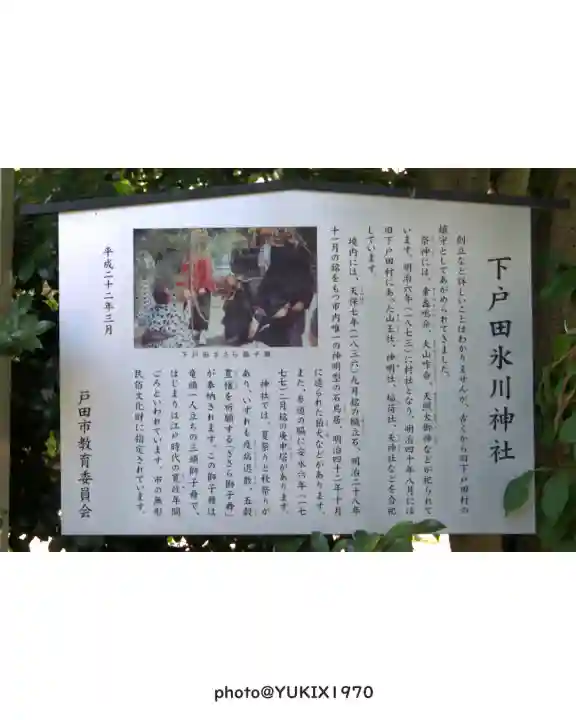 下戸田氷川神社
創立など詳しいことはわかりませんが、古くから旧下戸田村の
鎮守としてあがめられてきました。
祭神には、素盞嗚命、大山咋命、天照大御神などが祀られて
います。明治六年(一八七三)に村社となり、明治四十年八月には
旧下戸田村にあった山王社、神明社、稲荷社、天神社などを合祀
しています。
境内には、天保七年(一八三六)九月銘の幟立石、明治二十八年
十一月の銘をもつ市内唯一の神明型の石鳥居、明治四十二年十月
に造られた狛犬などがあります。
また、参道の脇に安永六年(一七
七七)二月銘の庚申塔があります。
神社では、夏祭りと秋祭りが
あり、いずれも疫病退散、五穀
豊穣を祈願する「ささら獅子舞」
が奉納されます。この獅子舞は
竜頭一人立ちの三頭獅子舞で、
はじまりは江戸時代の寛政年間
ごろといわれています。市の無形
民俗文化財に指定されています。
下戸田ささら獅子舞
平成二十二年三月
戸田市教育委員会
photo@YUKIX1970